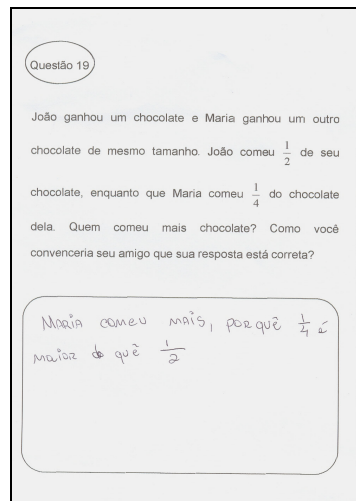 Questão 19
João ganhou um chocolate e Maria ganhou um outro
chocolate de mesmo tamanho. João comeu 1/2 de seu
chocolate, enquanto que Maria comeu 1/4 do chocolate
dela. Quem comeu mais chocolate? Como você
convenceria seu amigo que sua resposta está correta?
MARIA comeu mAis, porquê 1/4 é
maior do quê 1/2